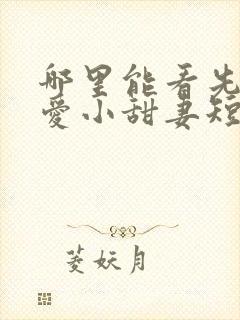 哪里能看先
爱小甜妻短
菱妖月